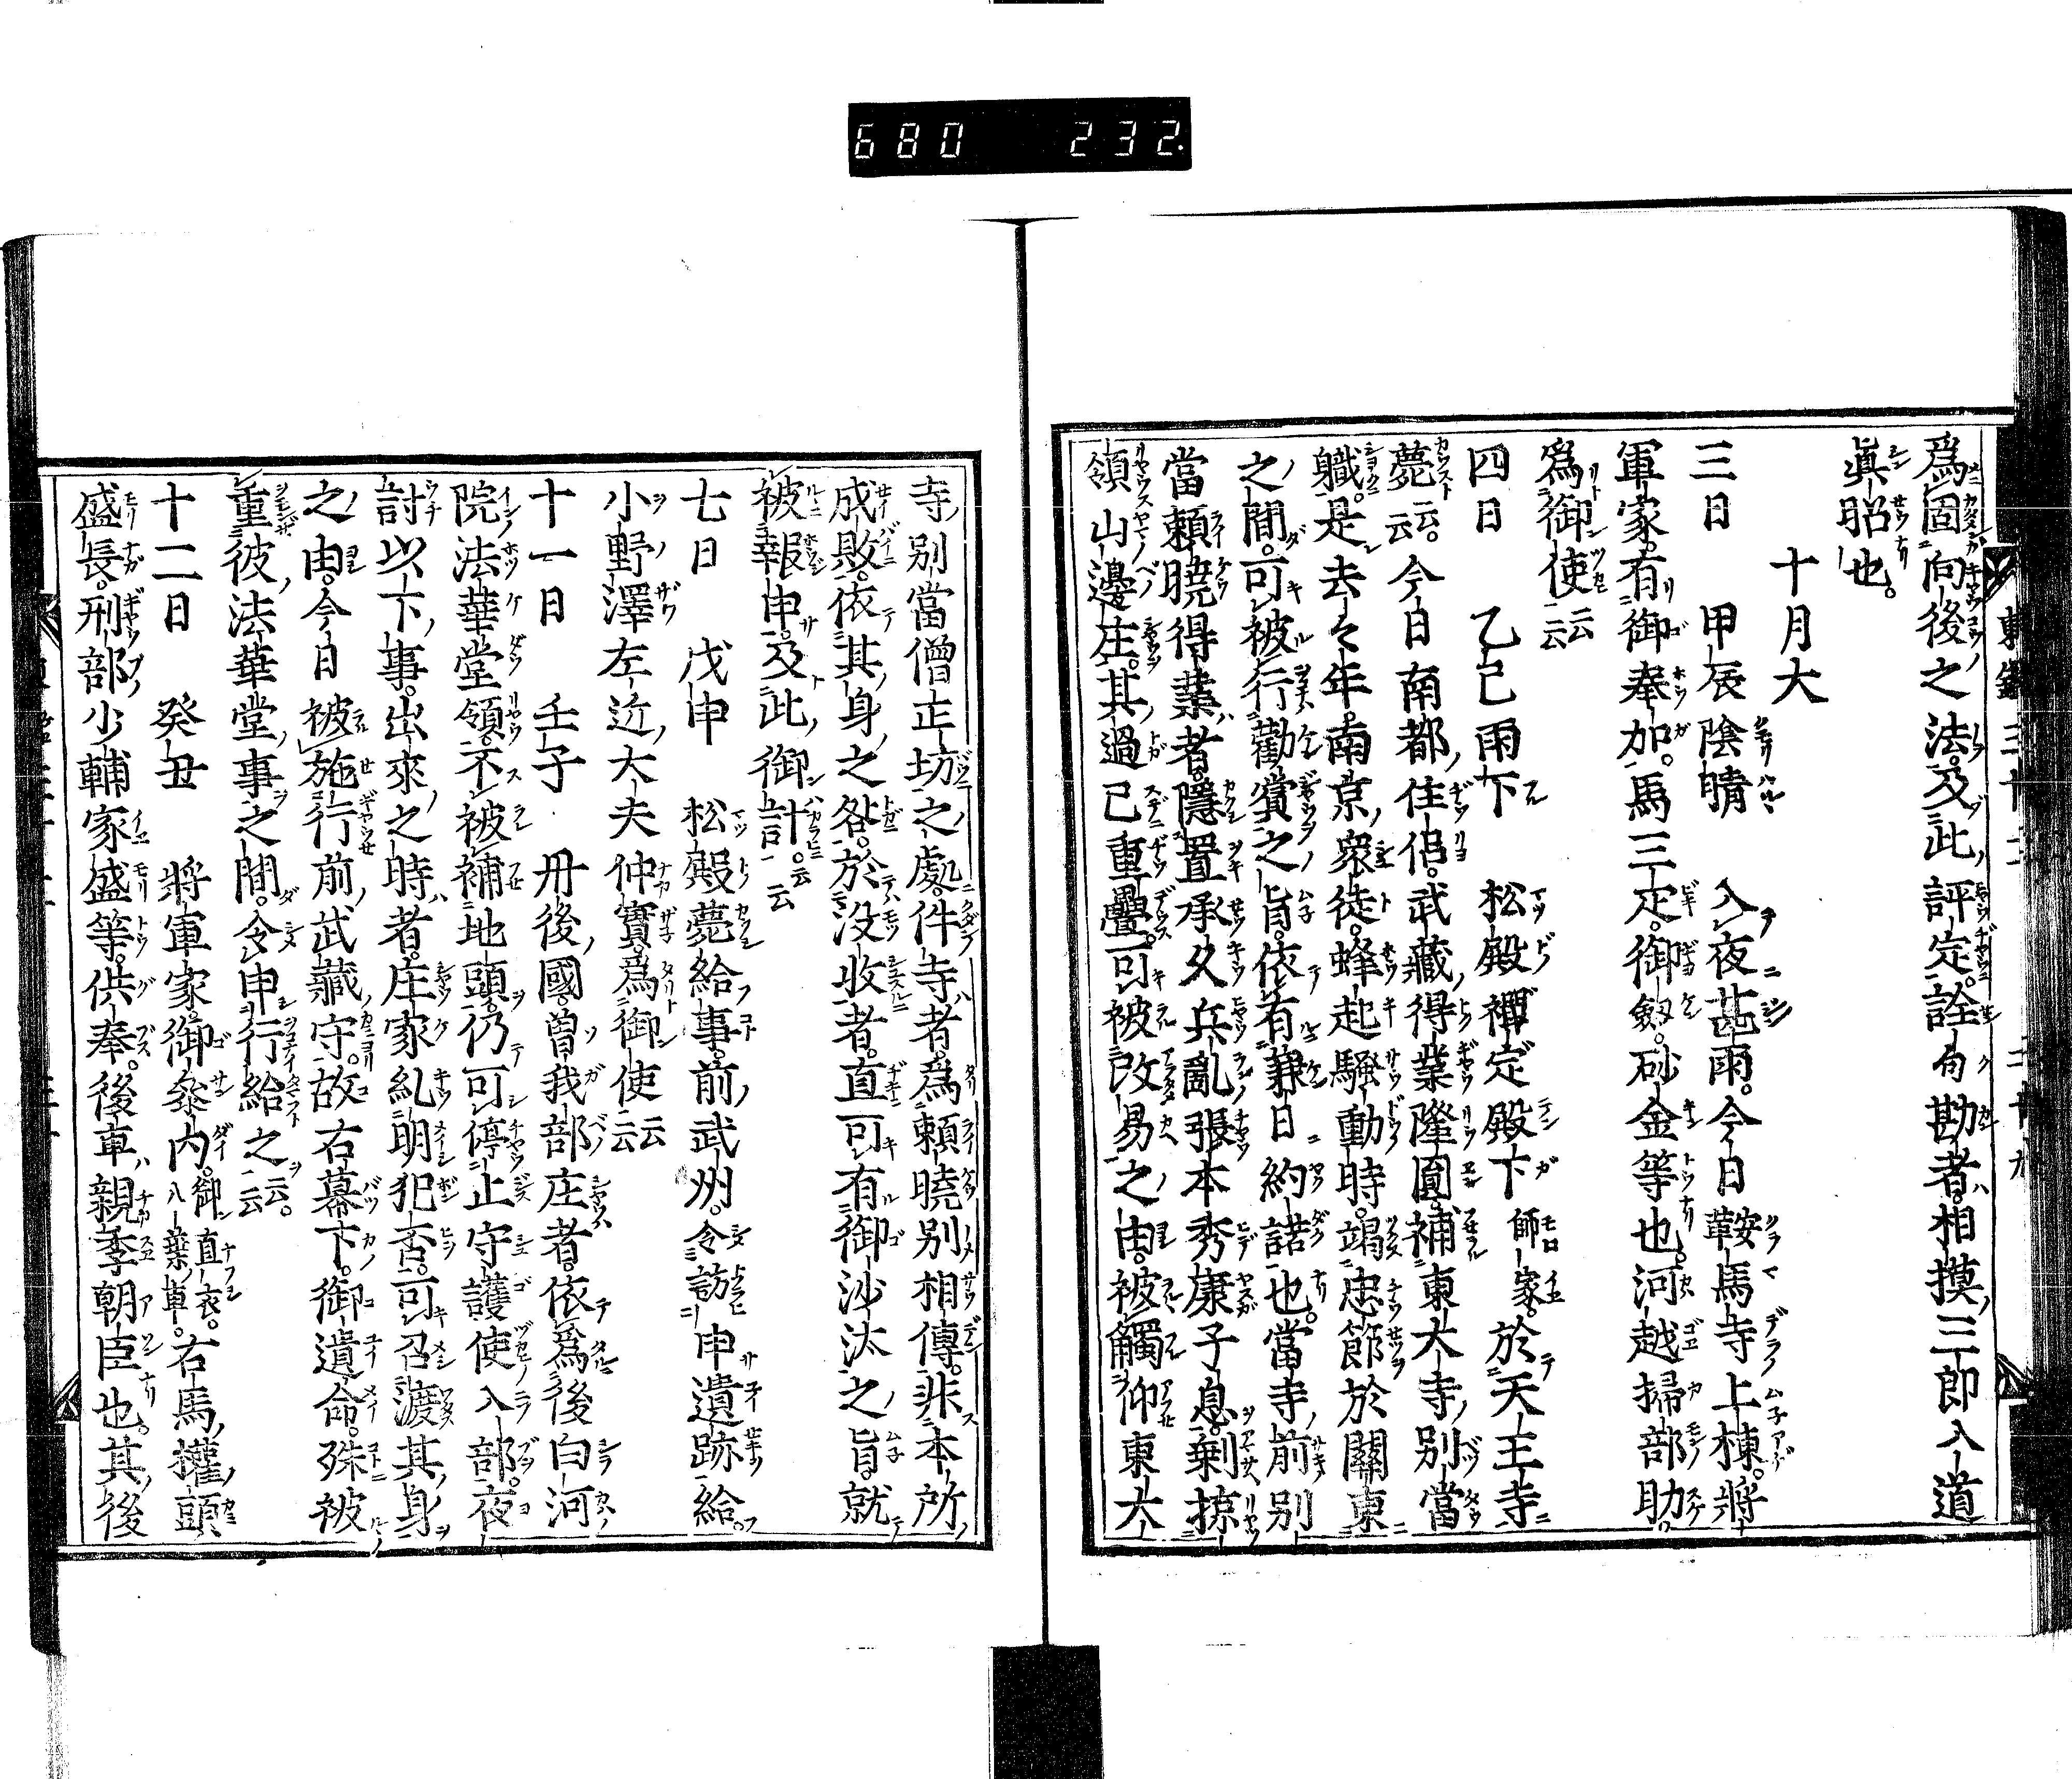 680 232.
爲固向後之法。及此評定。詮句勘者。相摸三郎入道
眞昭也。
十月大
三日 甲辰陰晴 入夜甚雨。今日鞍馬寺上棟。將
軍家。有御奉加。馬三疋。御劔。砂金等也。河越掃部助。
爲御使云云
四日 乙巳雨下 松殿禪定殿下師家。於天王寺
薨云云。今日南都住侶。武藏得業隆圓。補東大寺別當
職。是去々年。南京衆徒。蜂起騷動時。竭忠節於關東
之間。可被行勸賞之旨。依有兼日約諾也。當寺前別
當頼曉得業者。隱置承久兵亂張本秀康子息。剩掠
領山邊庄。其過已重疊。可被改易之由。被觸仰東大
寺別當僧正坊之處。件寺者。爲頼曉別相傳。非本所
成敗。依其身之咎。於沒收者。直可有御沙汰之旨。就
被報申。及此御計云云
七日 戊申 松殿薨給事。前武州。令訪申遺跡給。
小野澤左近大夫仲實。爲御使云云
十一日 壬子 丹後國。曽我部庄者。依爲後白河
院法華堂領。不被補地頭。仍可停止守護使入部。夜
討以下事。出來之時者。庄家糺明犯否。可召渡其身
之由。今日被施行前武藏守。故右幕下。御遺命。殊被
重彼法華堂事之間。令申行給之云云。
十二日 癸丑 將軍家。御參内。御直衣。八葉車。右馬權頭
盛長。刑部少輔家盛等。供奉。後車親季朝臣也。其後